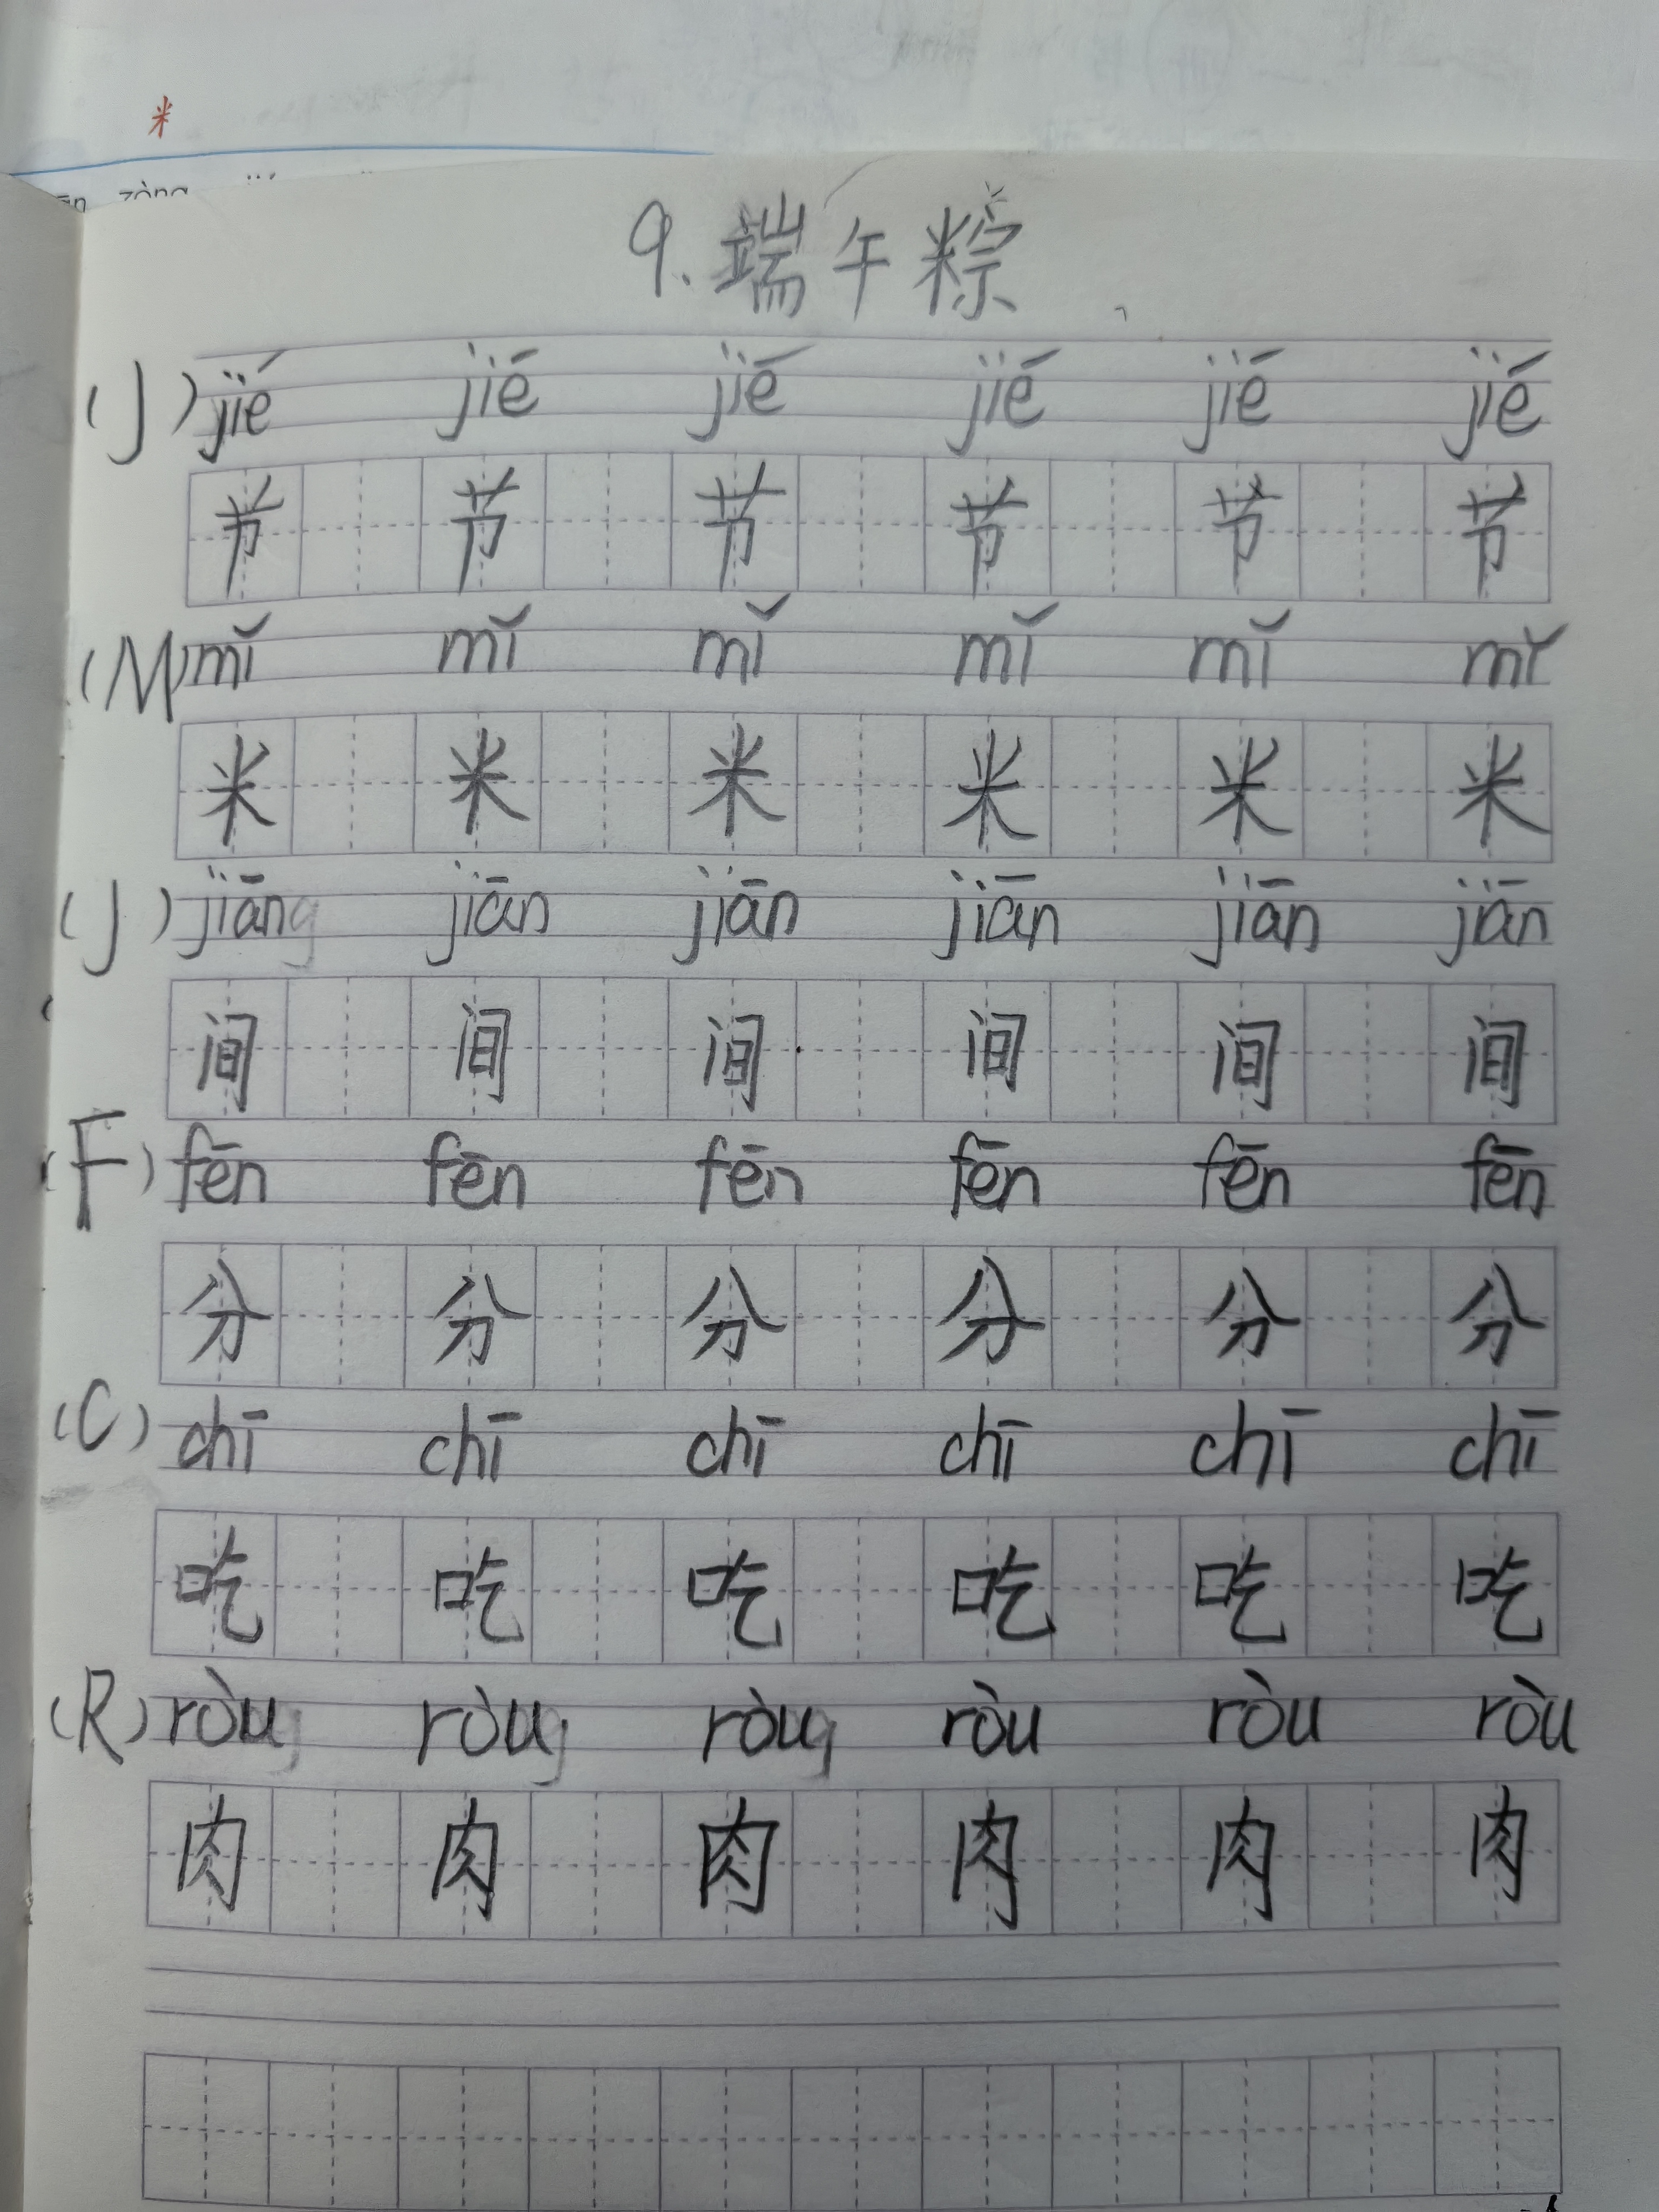 米
zòng
9.端午粽
(J) jié jié jié jié jié jié
节 节 节 节 节 节
(M) mǐ mǐ mǐ mǐ mǐ mǐ
米 米 米 米 米 米
(J) jiān jiān jiān jiān jiān jiān
间 间 间 间 间 间
(F) fēn fēn fēn fēn fēn fēn
分 分 分 分 分 分
(C) chī chī chī chī chī chī
吃 吃 吃 吃 吃 吃
(R) ròu ròu ròu ròu ròu ròu
肉 肉 肉 肉 肉 肉